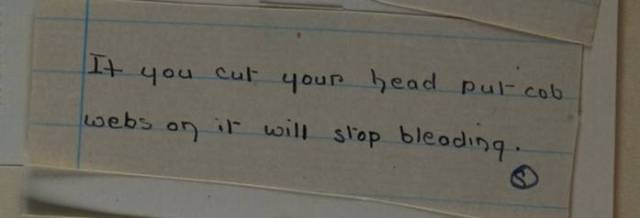 If you cut your head put cob
webs on it will stop bleeding.
S